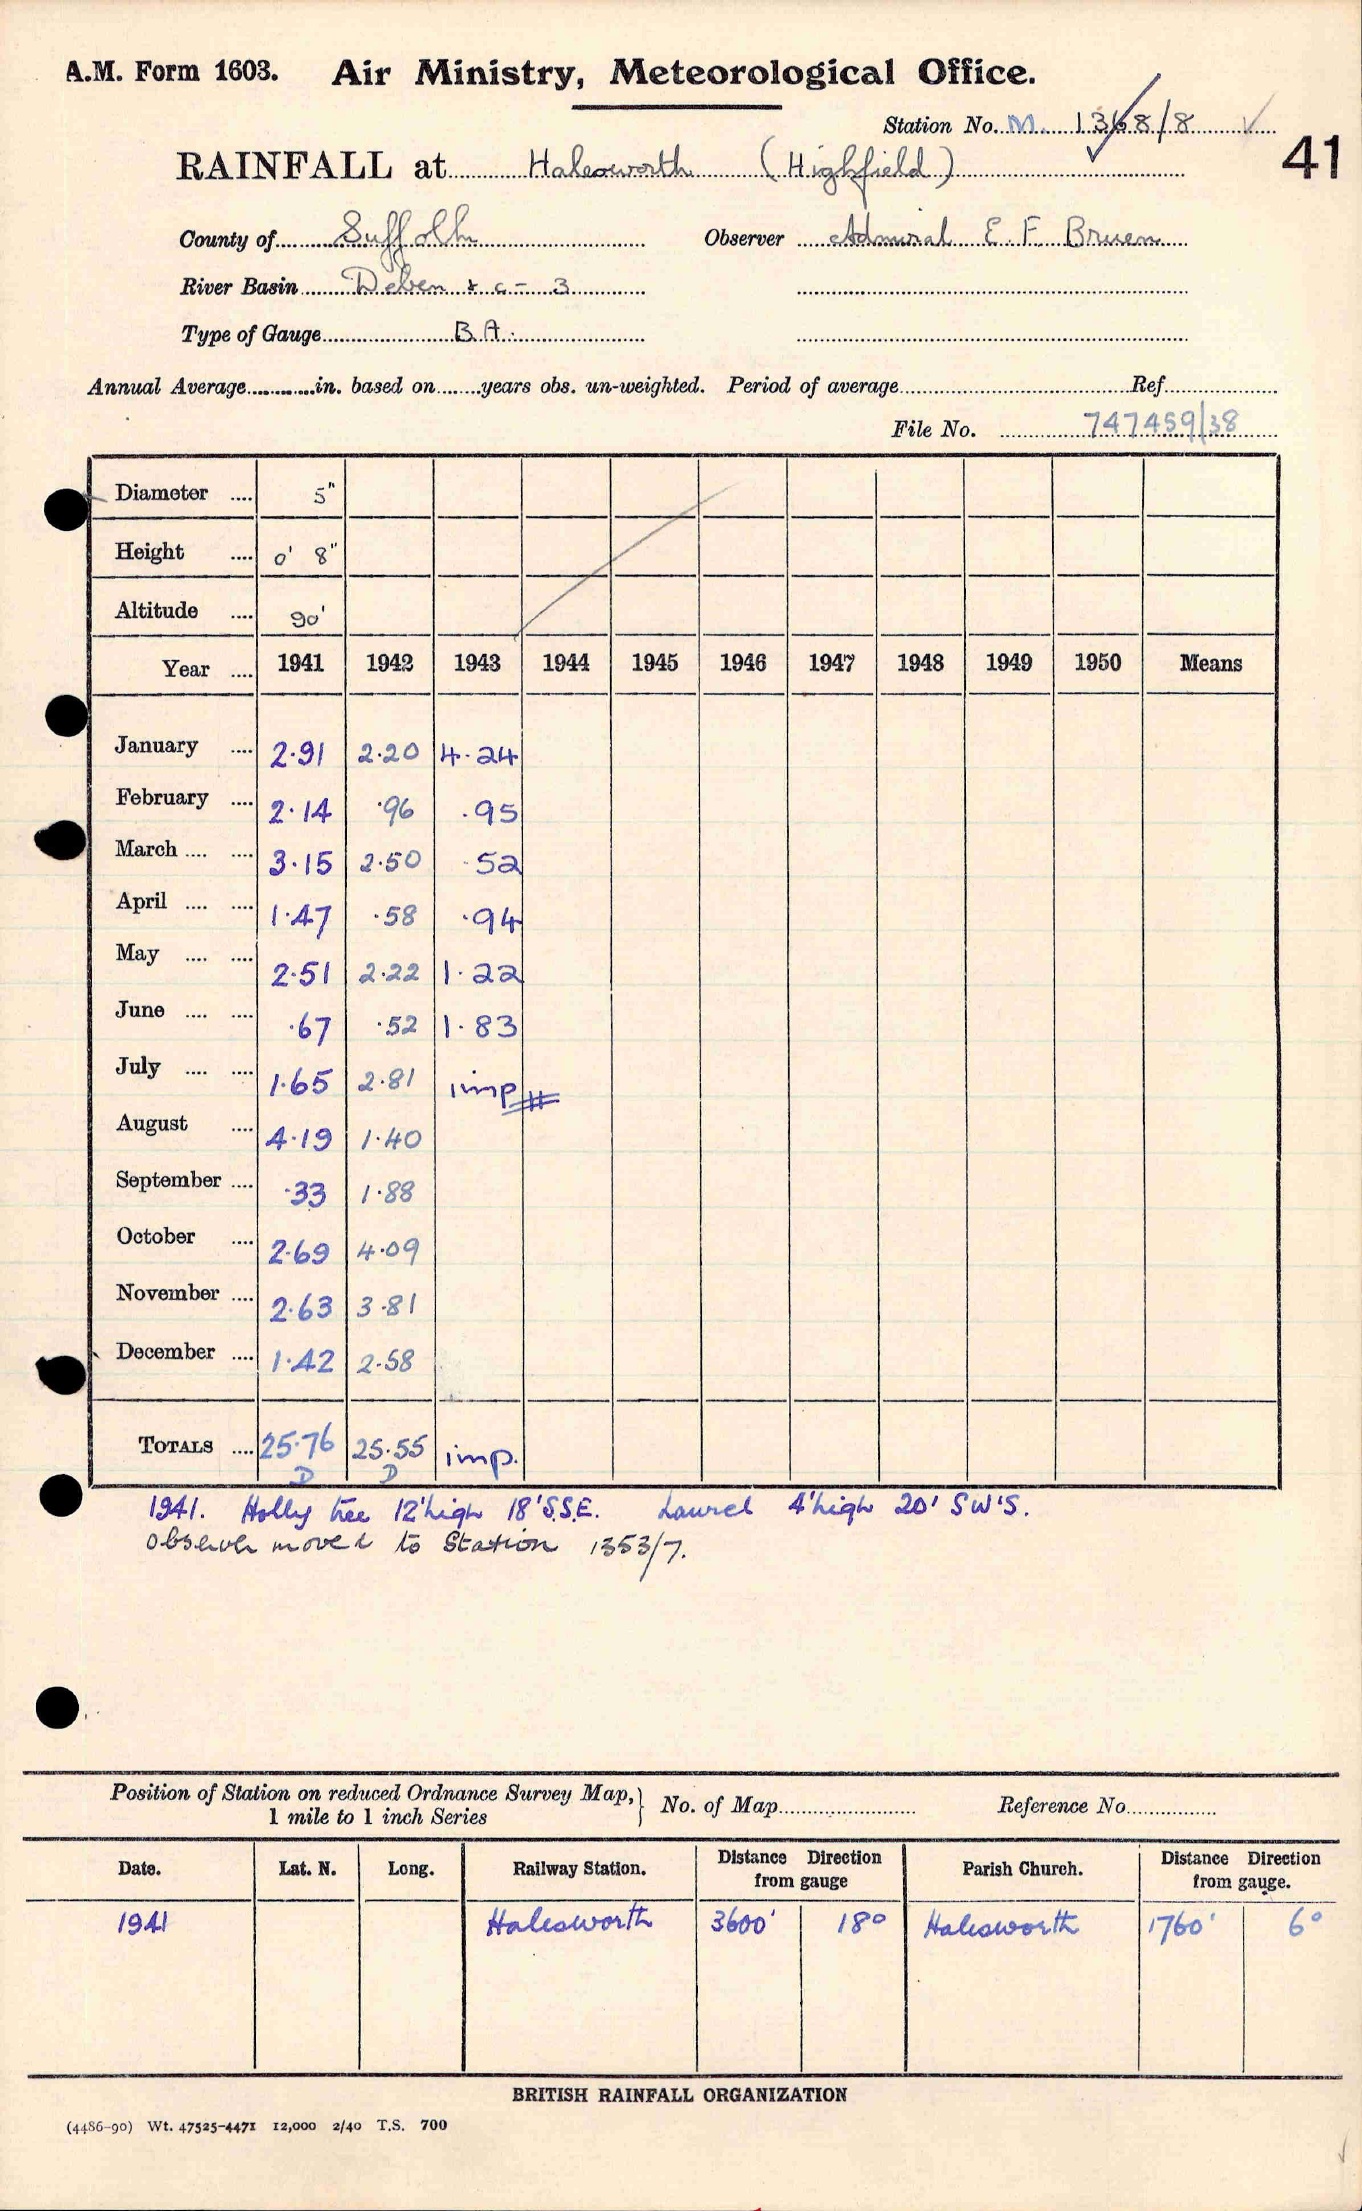 A.M. Form 1603. Air Ministry, Meteorological Office.
Station No. M. 1368/8
41
RAINFALL at Halesworth (Highfield)
County of Suffolk Observer Admiral E. F. Bruen
River Basin Deben & c - 3
Type of Gauge B A.
Annual Average in. based on years obs. un-weighted. Period of average Ref
File No. 747459/38
Diameter 5"
Height 0' 8"
Altitude 90'
Year 1941 1942 1943 1944 1945 1946 1947 1948 1949 1950 Means
January 2.91 2.20 4.24
February 2.14 .96 .95
March 3.15 2.50 .52
April 1.47 .58 .94
May 2.51 2.22 1.22
June .67 .52 1.83
July 1.65 2.81 imp
August 4.19 1.40
September .33 1.88
October 2.69 4.09
November 2.63 3.81
December 1.42 2.58
TOTALS 25.76 25.55 imp.
D D
1941. Holly tree 12'high 18'S.S.E. Laurel 4'high 20' SW'S.
Observer moved to Station 1353/7.
Position of Station on reduced Ordnance Survey Map,} No. of Map Reference No.
1 mile to 1 inch Series
Date. Lat. N. Long. Railway Station. Distance Direction from gauge Parish Church. Distance Direction from gauge.
1941 Halesworth 3600' 18° Halesworth 1760' 6°
BRITISH RAINFALL ORGANIZATION
(4486-90) Wt. 47525-4471 12,000 2/40 T.S. 700